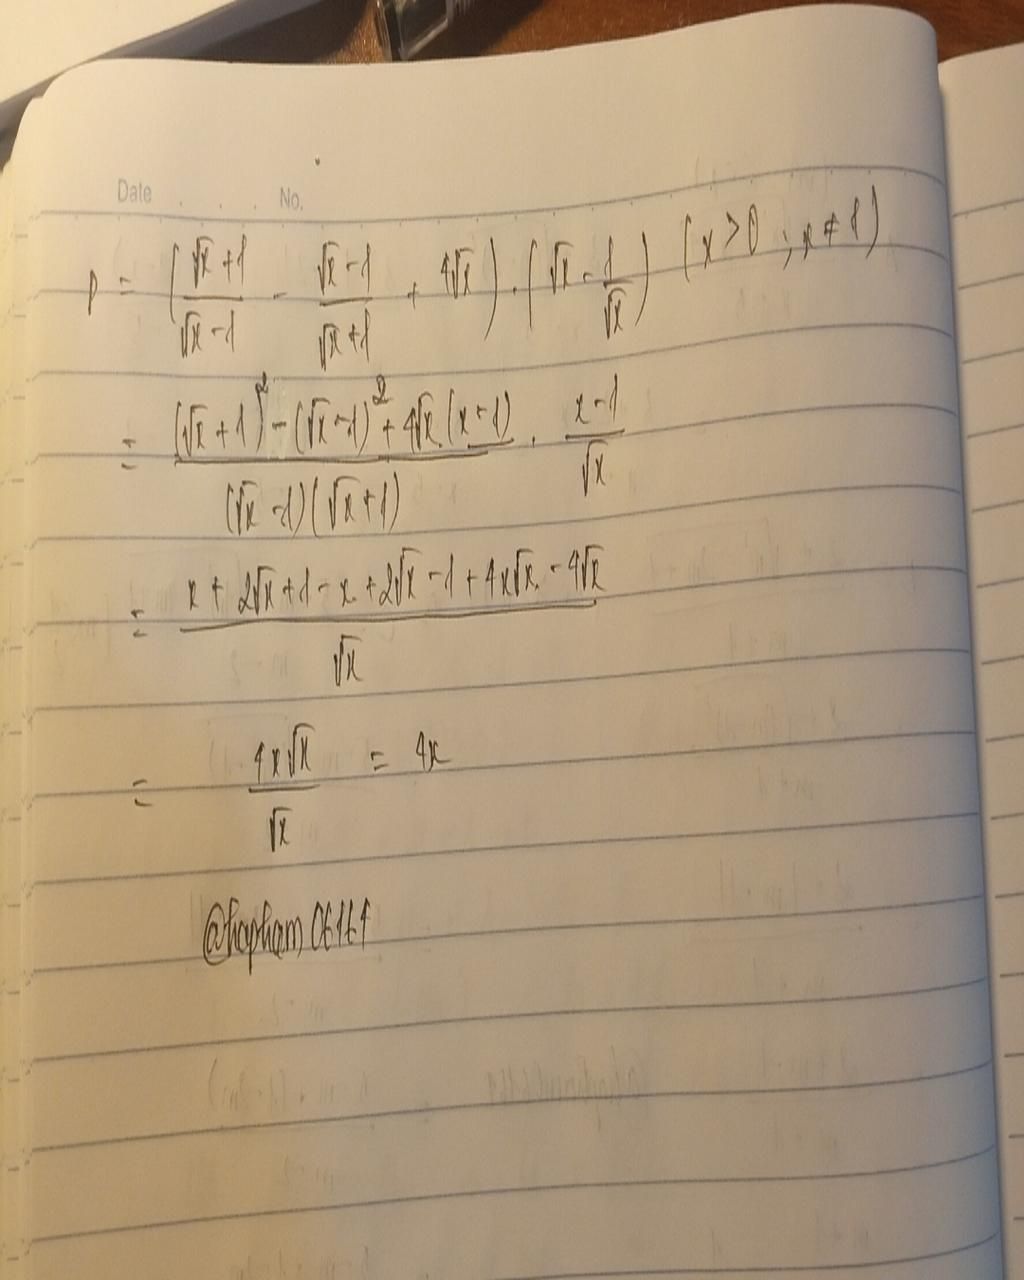 Date . . . No.
P = ( (√x+1)/(√x-1) - (√x-1)/(√x+1) + 4√x ) . ( √x - 1/√x ) (x>0 ; x≠1)
= ((√x+1)² - (√x-1)² + 4√x.(x-1))/((√x-1)(√x+1)) . (x-1)/√x
= (x + 2√x + 1 - x + 2√x - 1 + 4x√x - 4√x)/√x
= 4x√x/√x = 4x
@hapham06161